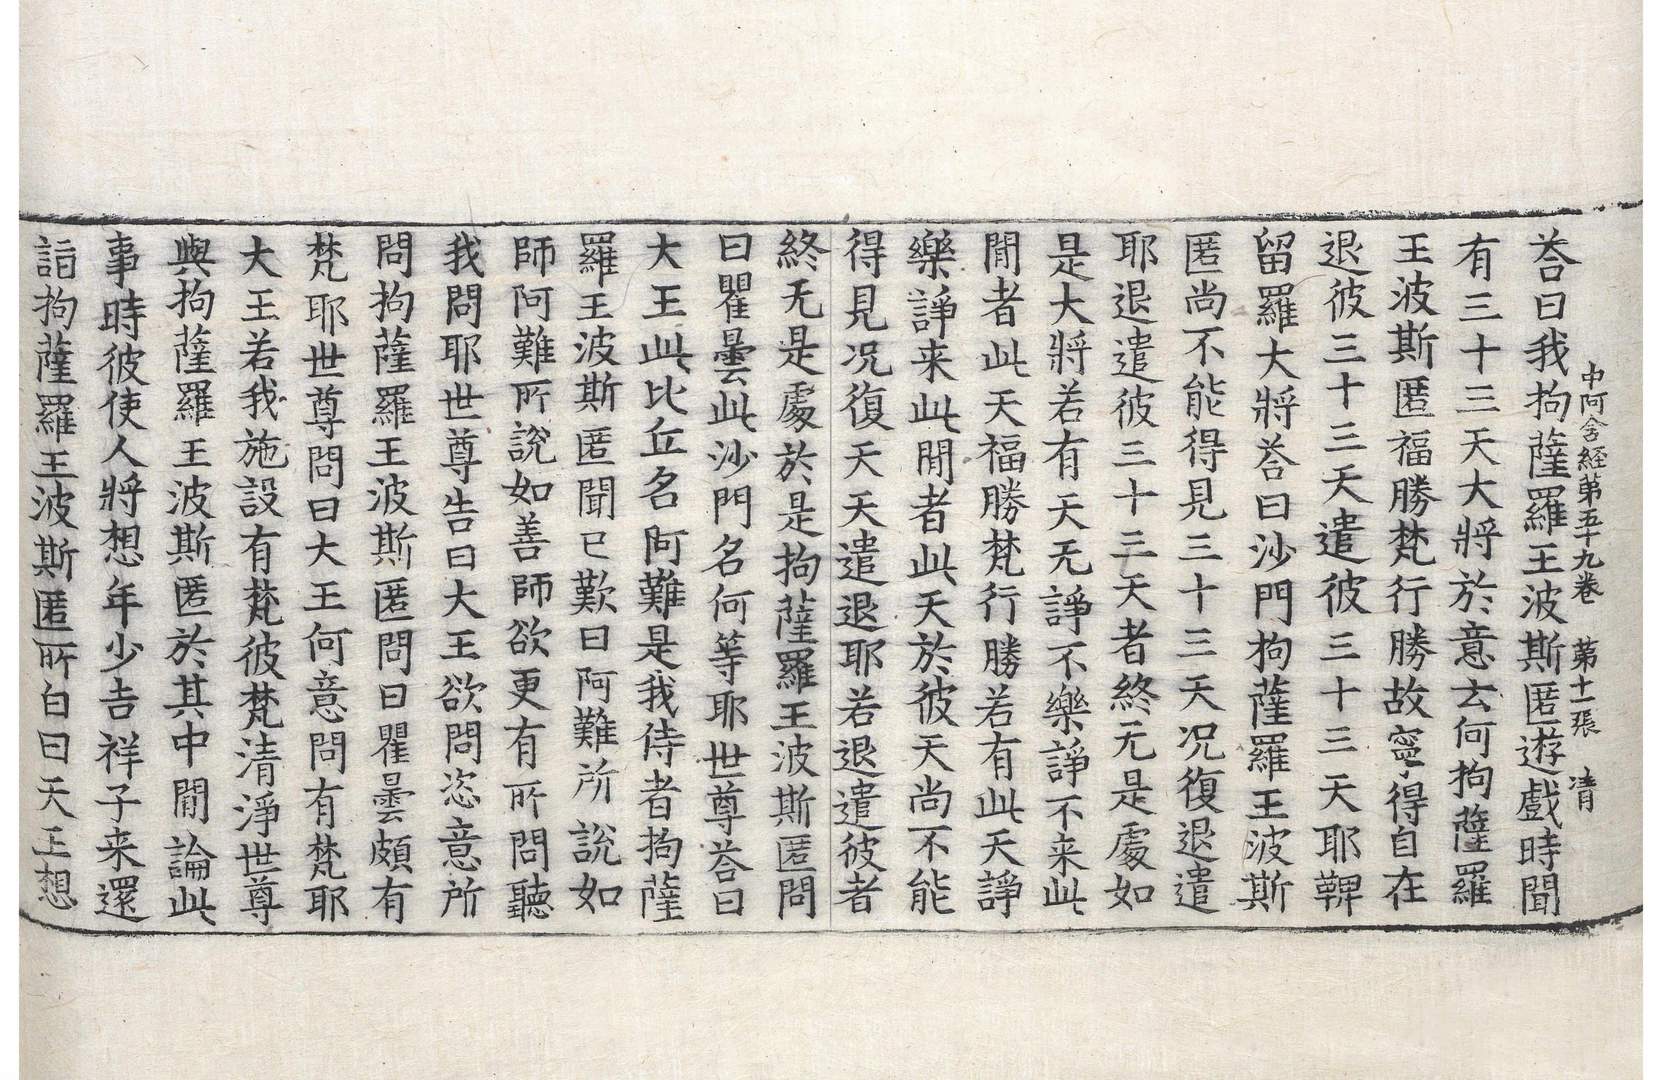 中阿含経第五十九卷 第十一張 清
荅曰我拘薩羅王波斯匿遊戲時聞
有三十三天大將於意云何拘薩羅
王波斯匿福勝梵行勝故寧得自在
退彼三十三天遣彼三十三天耶鞞
留羅大將荅曰沙門拘薩羅王波斯
匿尚不能得見三十三天況復退遣
耶退遣彼三十三天者終无是處如
是大將若有天无諍不樂諍不来此
閒者此天福勝梵行勝若有此天諍
樂諍来此閒者此天於彼天尚不能
得見况復天天遣退耶若退遣彼者
終无是處於是拘薩羅王波斯匿問
曰瞿曇此沙門名何等耶世尊荅曰
大王此比丘名阿難是我侍者拘薩
羅王波斯匿聞已歎曰阿難所說如
師阿難所說如善師欲更有所問聽
我問耶世尊告曰大王欲問恣意所
問拘薩羅王波斯匿問曰瞿曇頗有
梵耶世尊問曰大王何意問有梵耶
大王若我施設有梵彼梵清淨世尊
與拘薩羅王波斯匿於其中閒論此
事時彼使人將想年少吉祥子来還
詣拘薩羅王波斯匿所白曰天王想